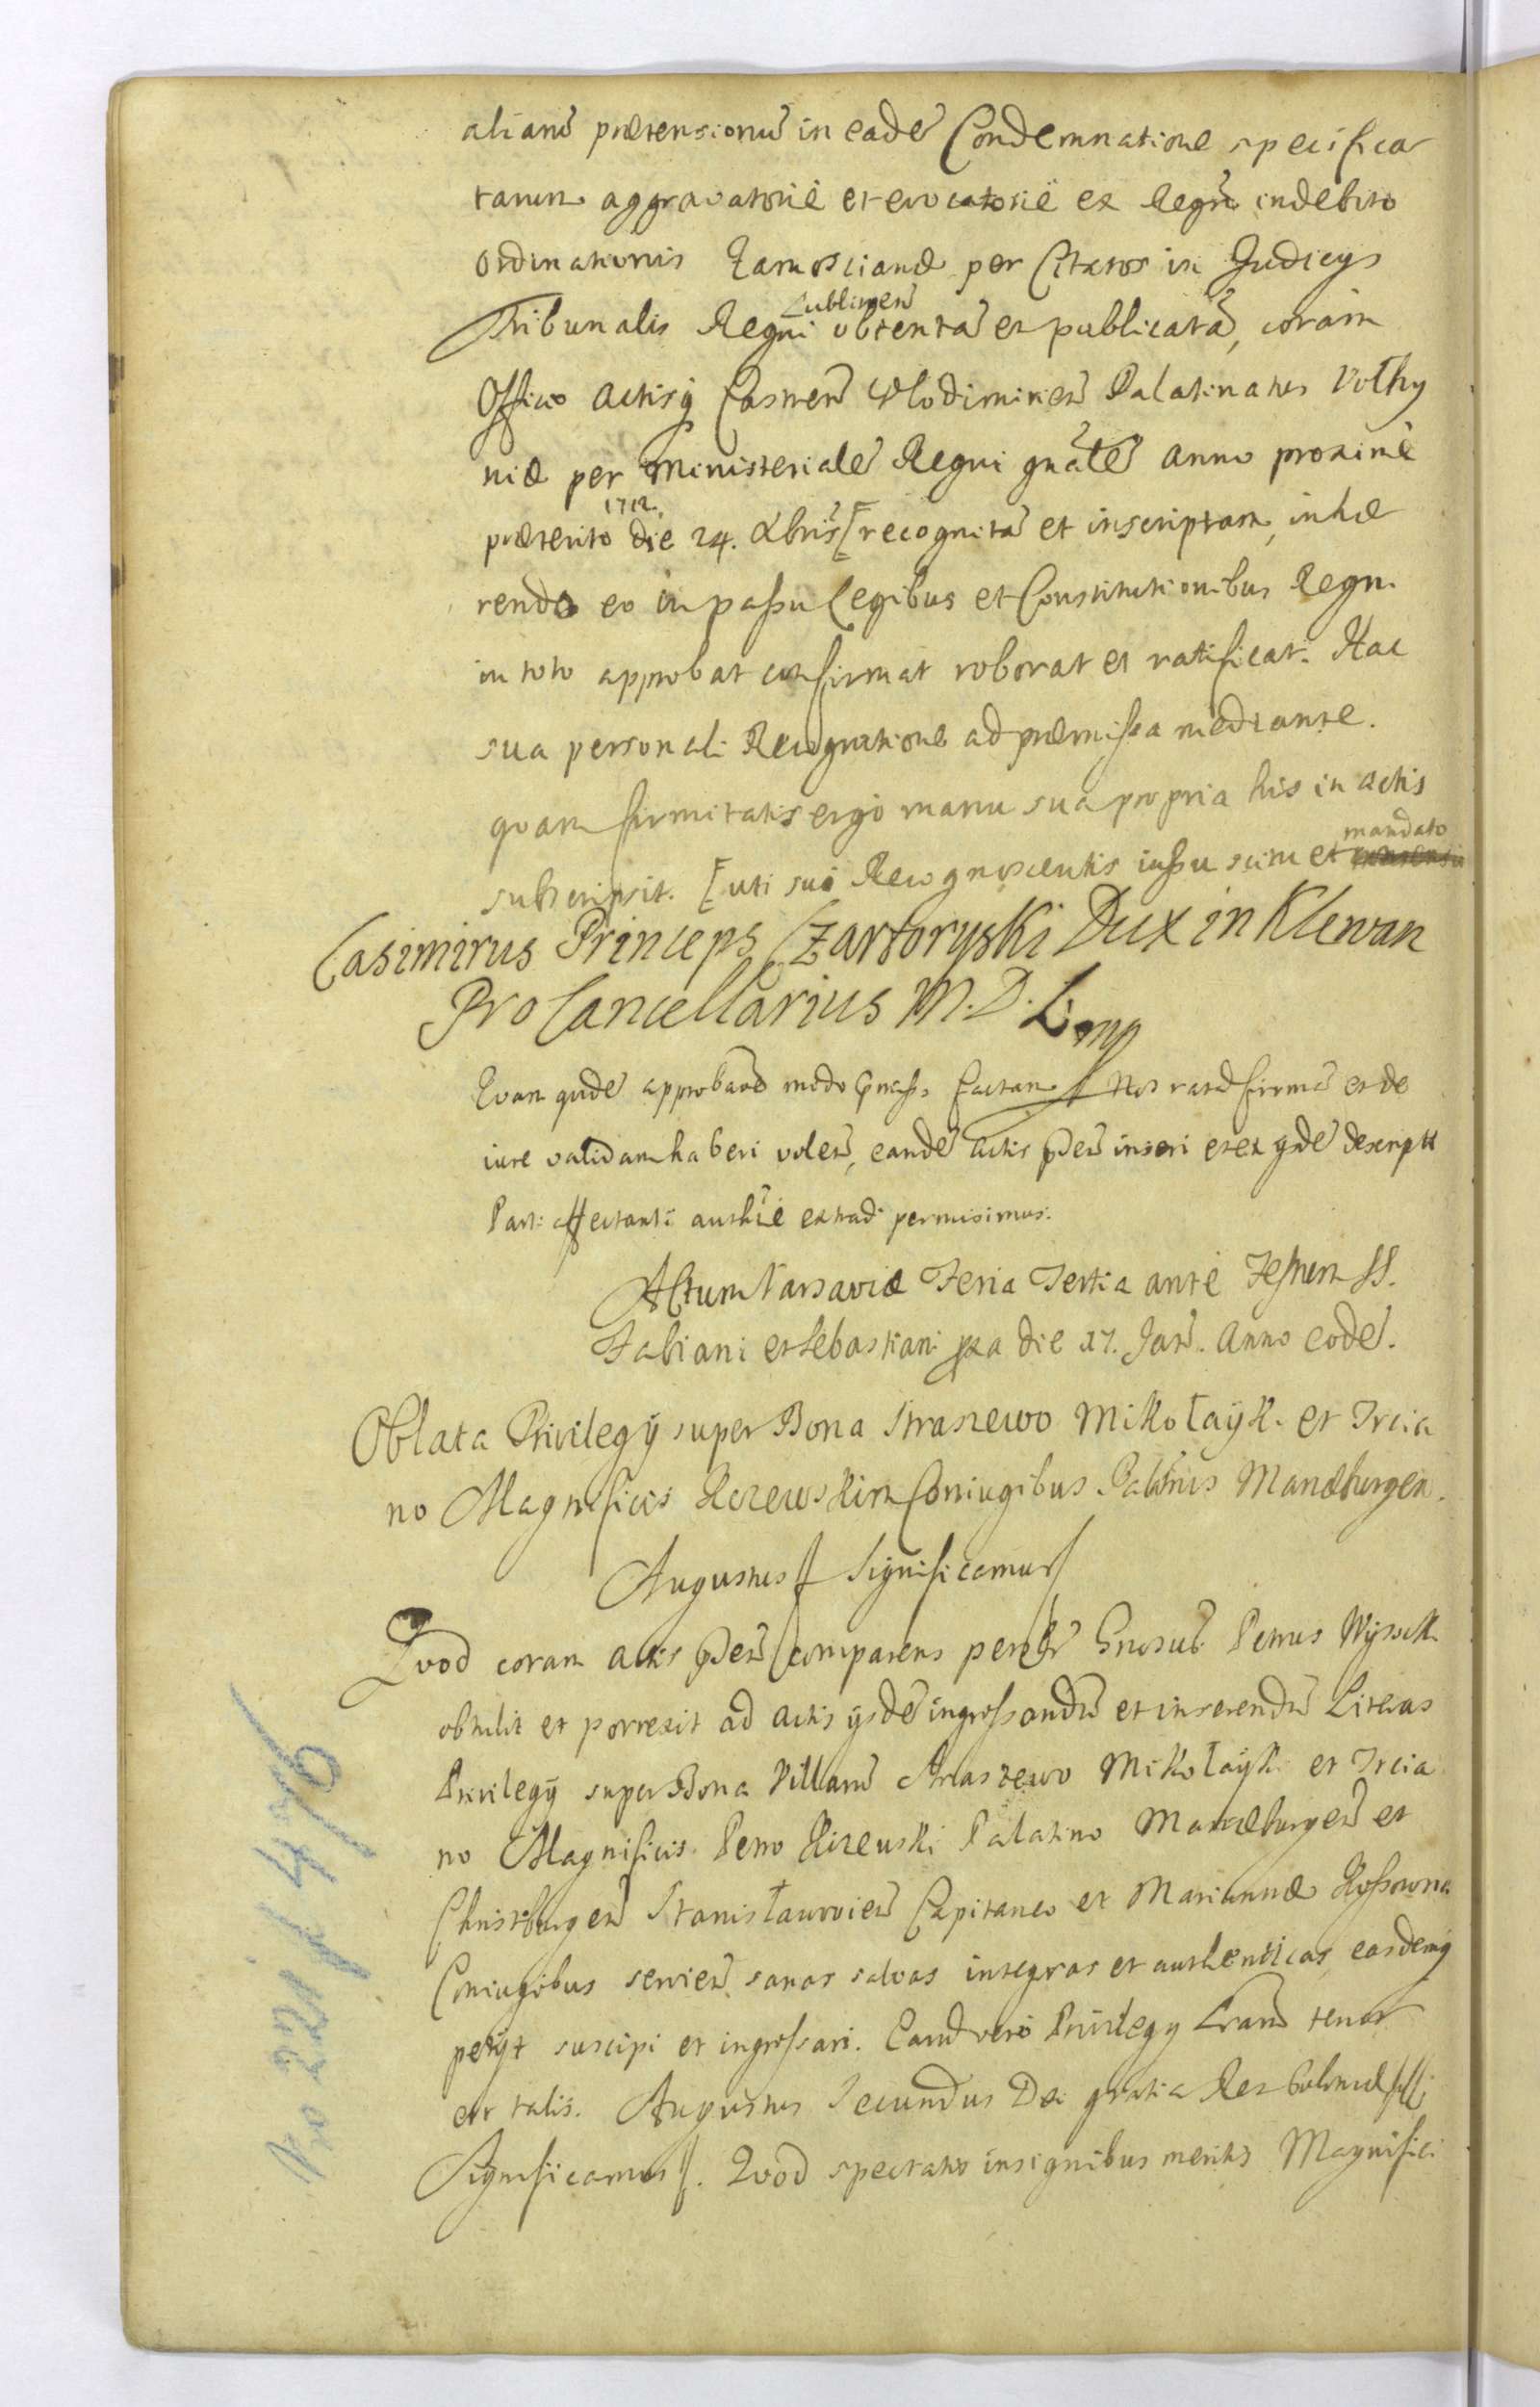 alianũ prætensionũ in eadẽ Condemnatione specifica
tarum aggravatoriè et evocatoriè ex Regnõ indebito
Ordinationis Zamoscianæ per Citatos in Judicys
Tribunalis Regni Lublineñ obtentã et publicatã, coram
Officio Actisq̃ Castreñ Wlodimirieñ Palatinatus Volhy
niæ per Ministerialẽ Regni gnãlẽ anno proximè
præterito 1712. die 24. Xbris [recognitã et inscriptam, inhæ
rendo eo in passu Legibus et Constitutionibus Regni
in toto approbat confirmat roborat et ratificat. Hac
sua personali Recognitione ad præmissa mediante.
quam firmitatis ergò manu sua propria his in actis
subscripsit. [uti sui Recognoscentis iussu scitu et mandato
Casimirus Princeps Czartoryski Dux in Klewan
ProCancellarius M. D. L. mp
Quam quidẽ approbaõẽ modo pmisso factam Nos ratã firmã et de
iure validam haberi voleñ, eandẽ actis pñteñ inseri et ex ysdẽ descriptã
Parti affectanti authẽ extradi permisimus.
Actum Varsaviæ Feria Tertia antè Festum SS.
Fabiani et Sebastiani pxa die 17. Jañ. Anno eodẽ.
Oblata Privilegÿ super Bona Straszewo Mikołaÿk. et Trcia
no Magnificis Kczewskim Coniugibus Palatinis Mariæburgen.
Augustus Significamus
Quod coram actis pñteñ comparens personlr Gnosus Petrus Wÿsocki
obtulit et porrexit ad acticã ÿsdẽ ingrossandũ et inserendũ Literas
Privilegÿ super Bona Villarũ Straszewo Mikołaÿki et Trcia
no Magnificis Petro Kczewski Palatino Mariæburgeñ et
Christburgeñ Stanisławovieñ Capitaneo et Mariannæ Kossowna
Coniugibus servieñ sanas salvas integras et authenticas, easdemq̃
petÿt suscipi et ingrossari. Earũ verò Privilegy Lrarũ tenor
est talis. Augustus Secundus Dei gratia Rex Poloniæ
Significamus. Quod spectatis insignibus meritis Magnifici
No 221 f 476